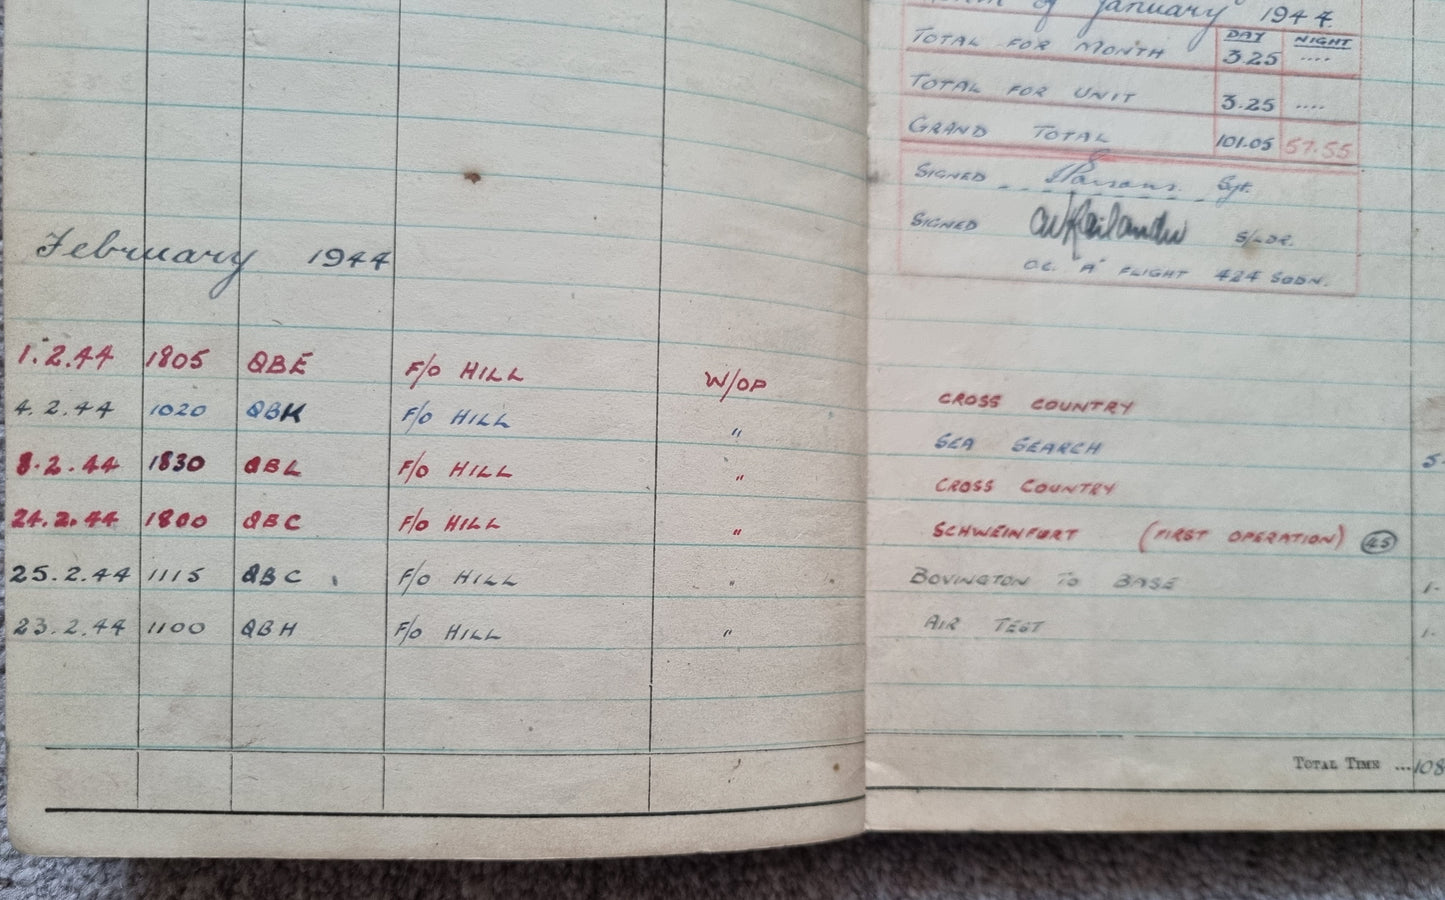 January 1944
DAY NIGHT
TOTAL FOR MONTH 3.25 ....
TOTAL FOR UNIT 3.25 ....
GRAND TOTAL 101.05 57.55
SIGNED Parsons. Sgt.
SIGNED S/LDR.
O.C. "A" FLIGHT 424 SQDN.
February 1944
1.2.44 1805 QBE F/O HILL W/OP CROSS COUNTRY
4.2.44 1020 QBK F/O HILL " SEA SEARCH 5.
8.2.44 1830 QBL F/O HILL " CROSS COUNTRY
24.2.44 1800 QBC F/O HILL " SCHWEINFURT (FIRST OPERATION) 45
25.2.44 1115 QBC F/O HILL " BOVINGTON TO BASE 1.
23.2.44 1100 QBH F/O HILL " AIR TEST 1.
TOTAL TIME ... 108